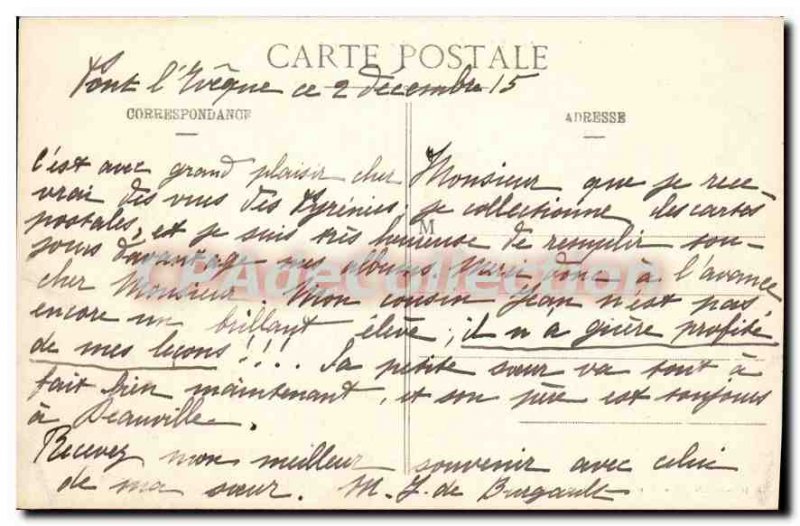 CARTE POSTALE
Pont l'Evêque ce 2 décembre 15
CORRESPONDANCE
ADRESSE
c'est avec grand plaisir cher Monsieur que je rece-
vrai des vues des Pyrénées, je collectionne les cartes
postales, et je suis très heureuse de remplir tou-
M
jours davantage mes albums. Merci donc à l'avance
CPAdeCollection
cher Monsieur. Mon cousin Jean n'est pas
encore un brillant élève ; il n'a guère profité
de mes leçons !!! Sa petite sœur va tout à
fait bien maintenant, et son père est toujours
à Deauville.
Recevez mon meilleur souvenir avec celui
de ma sœur. M. J. de